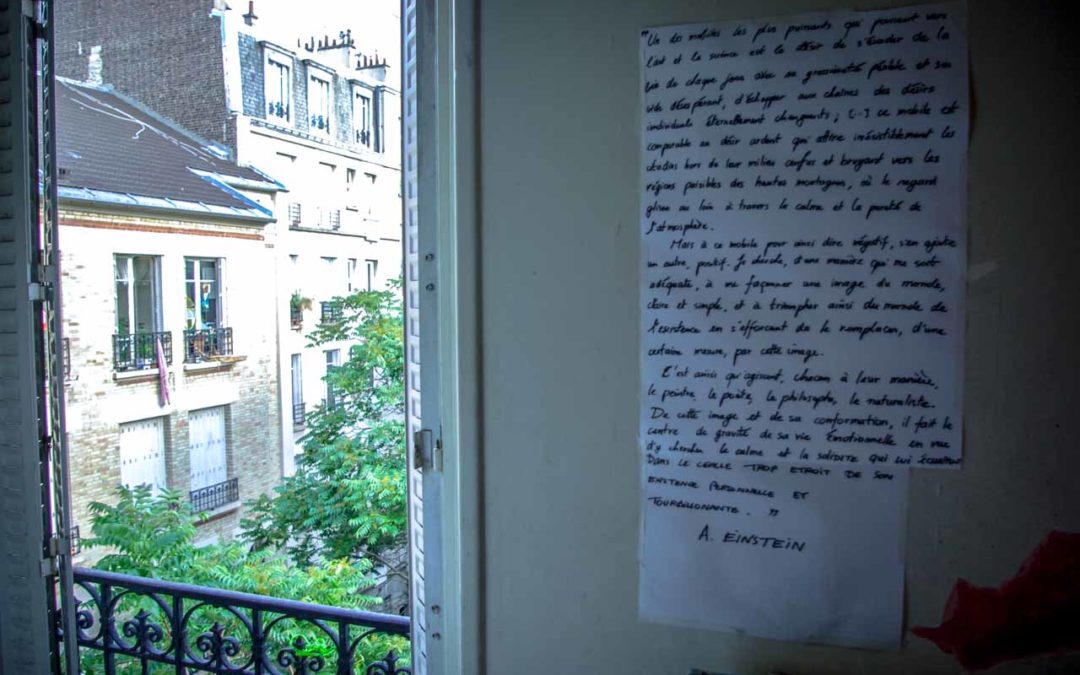 "Un des mobiles les plus puissants qui poussent vers
l'art et la science est le désir de s'évader de la
vie de chaque jour avec sa grossièreté pénible et son
vide désespérant, d'échapper aux chaînes des désirs
individuels éternellement changeants ; (...) ce mobile est
comparable au désir ardent qui attire irrésistiblement les
citadins hors de leur milieu confus et bruyant vers les
régions paisibles des hautes montagnes, où le regard
glisse au loin à travers le calme et la pureté de
l'atmosphère.
Mais à ce mobile pour ainsi dire négatif, s'en ajoute
un autre, positif. Je cherche, d'une manière qui me soit
adéquate, à me façonner une image du monde,
claire et simple, et à triompher ainsi du monde de
l'existence en s'efforçant de le remplacer, d'une
certaine mesure, par cette image.
C'est ainsi qu'agissent, chacun à leur manière,
le peintre, le poète, le philosophe, le naturaliste.
De cette image et de sa conformation, il fait le
centre de gravité de sa vie émotionnelle en vue
d'y chercher le calme et la SOLIDITE qui lui
DANS LE CERCLE TROP ETROIT DE SON
EXITENCE PERSONNELLE ET
TOURBILLONANTE. "
A. EINSTEIN